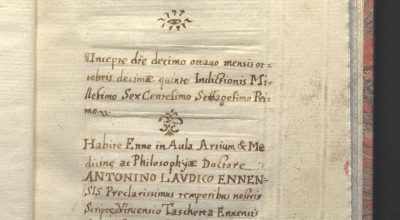 Incepte die decimo ottavo mensis oc-
tobris decimæ quinte Indictionis Mi-
llesimo Sex Centesimo Settagesimo Pri-
mo
Habite Enno in Aula Artium & Me
dicine ac Philosophyæ Doctore
ANTONINO LAVDICO ENNEN-
SIS Preclarissimus temporibus nostris
Scripte Vincensio Taschetta Ennensis